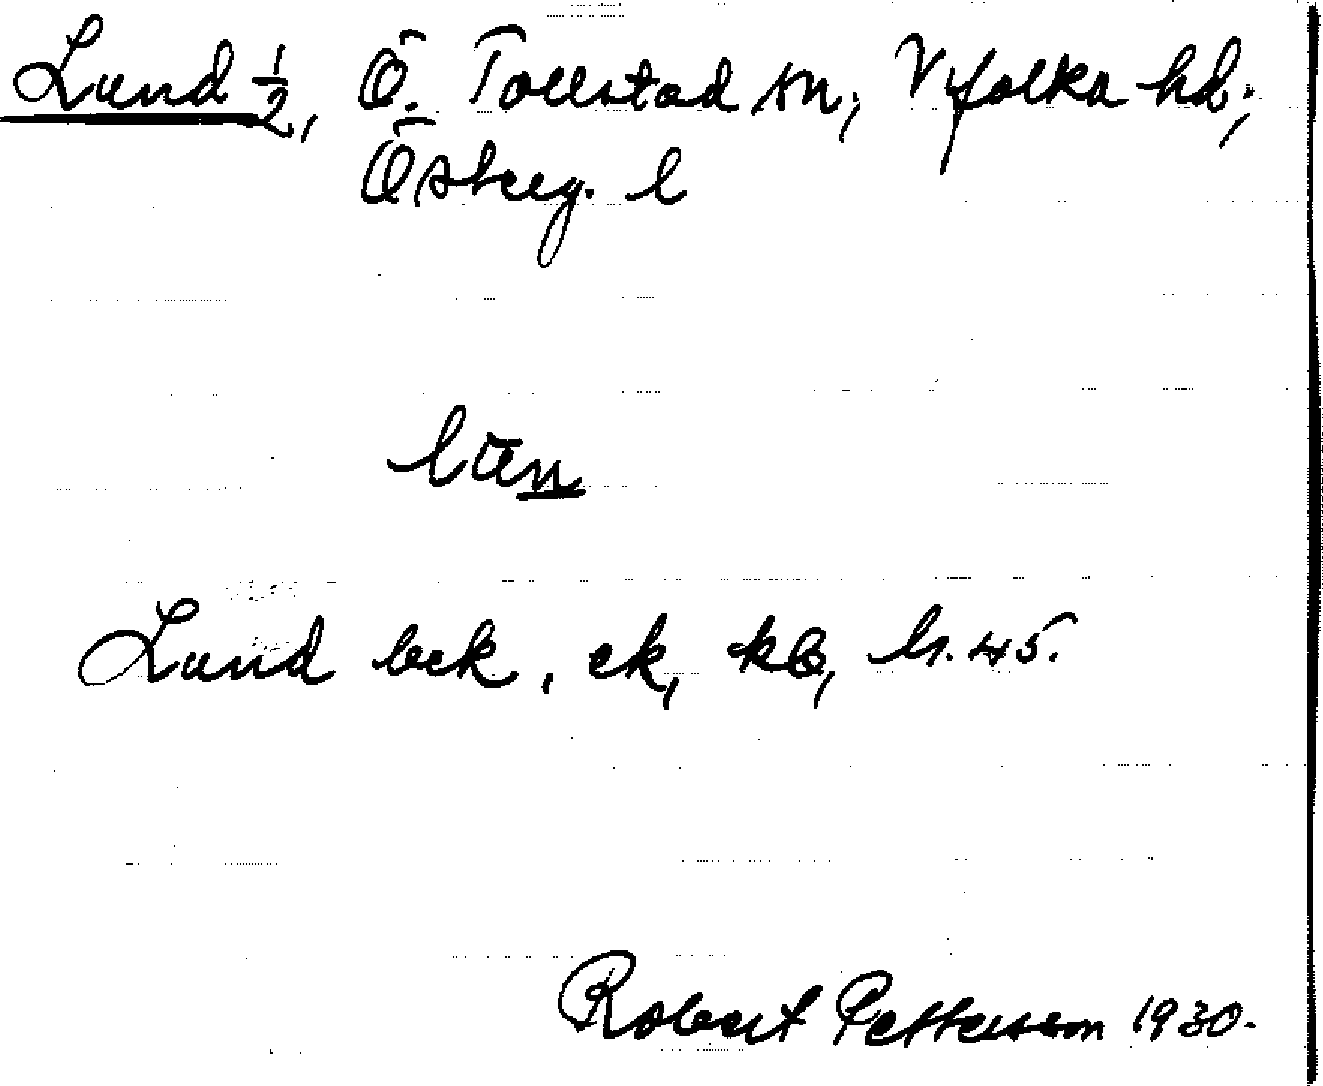 Lund ½, Ö. Tollstad sn, Vifolka hd,
Österg. l
Lund bek, ek, kb, bl. 45.
Robert Pettersson 1930.